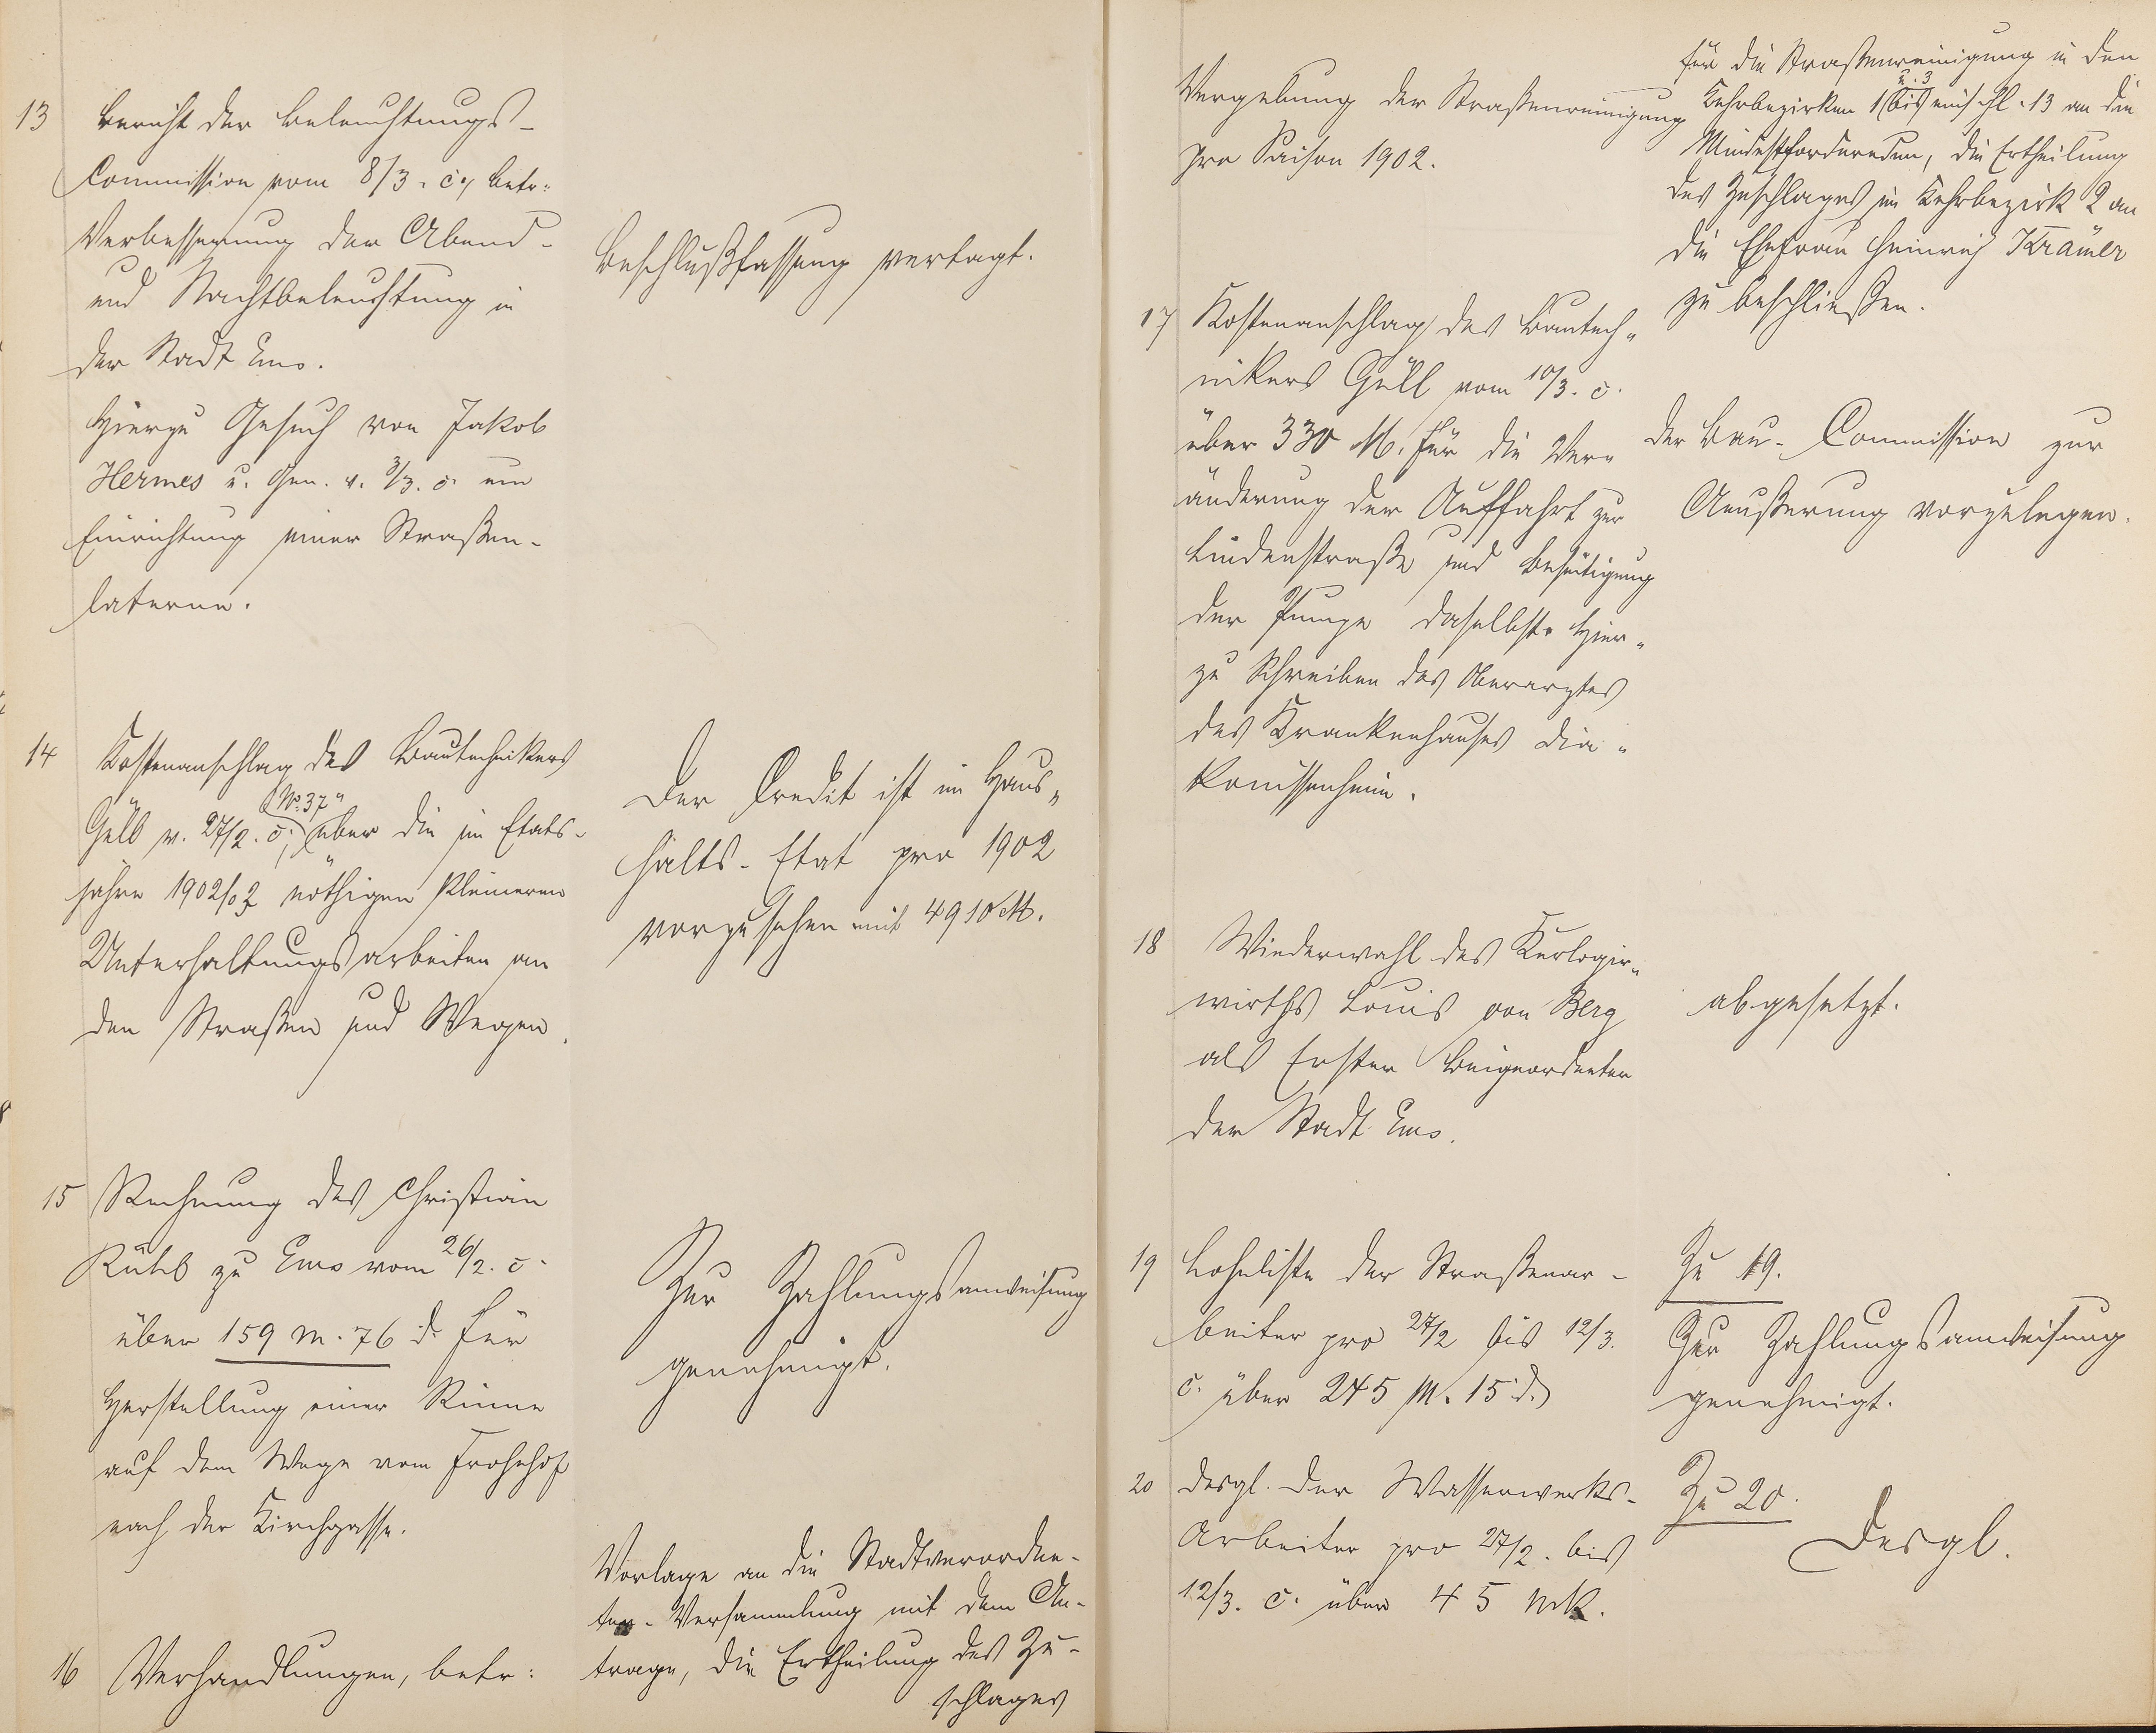 13 Bericht der Beleuchtungs-
Commission vom 8/3. c., betr.
Verbesserung der Abend-
und Nachtbeleuchtung in
der Stadt Ems.
Hierzu Gesuch von Jakob
Hermes u. Gen. v. 3/3. c. um
Einrichtung einer Straßen-
laterne.
Beschlußfassung vertagt.
14 Kostenanschlag des Bautechnikers
Güll v. 27/2. c., (№ 37) über die im Etats-
jahre 1902/03 nöthigen kleineren
Unterhaltungsarbeiten an
den Straßen und Wegen.
Der Credit ist im Haus-
halts-Etat pro 1902
vorzusehen mit 4910 M.
15 Rechnung des Christian
zu Ems vom 26/2. c.
über 159 M. 76 d. für
Herstellung einer Rinne
auf dem Wege vom Frohnhof
nach der Kirchgasse.
Zur Zahlungsanweisung
genehmigt.
16 Verhandlungen, betr:
Vorlage an die Stadtverordne-
ten-Versammlung mit dem An-
trage, die Ertheilung des Zu-
schlages
Vergebung der Straßenreinigung
pro Saison 1902.
für die Straßenreinigung in den
Kehrbezirken 1 u. 3 bis einschl. 13 an die
Mindestfordernden, die Ertheilung
des Zuschlages im Kehrbezirk 2 an
die Ehefrau Heinrich Krämer
zu beschließen.
17 Kostenanschlag des Bautech-
nikers Güll vom 10/3. c.
über 330 M. für die Ver-
änderung der Auffahrt zur
Lindenstraße und Beseitigung
der Pumpe daselbst. Hier-
zu Schreiben des Oberarztes
des Krankenhauses Dia-
konissenheim.
Der Bau-Commission zur
Aeußerung vorzulegen.
18 Wiederwahl des Kurlogir-
wirths Louis von Berg
als Erster Beigeordneter
der Stadt Ems.
abgesetzt.
19 Lohnliste der Straßenar-
beiter pro 27/2 bis 12/3.
c. über 245 M. 15 d.
Zu 19.
Zur Zahlungsanweisung
genehmigt.
20 desgl. der Wasserwerks-
Arbeiter pro 27/2. bis
12/3. c. über 45 Mk.
Zu 20.
Desgl.